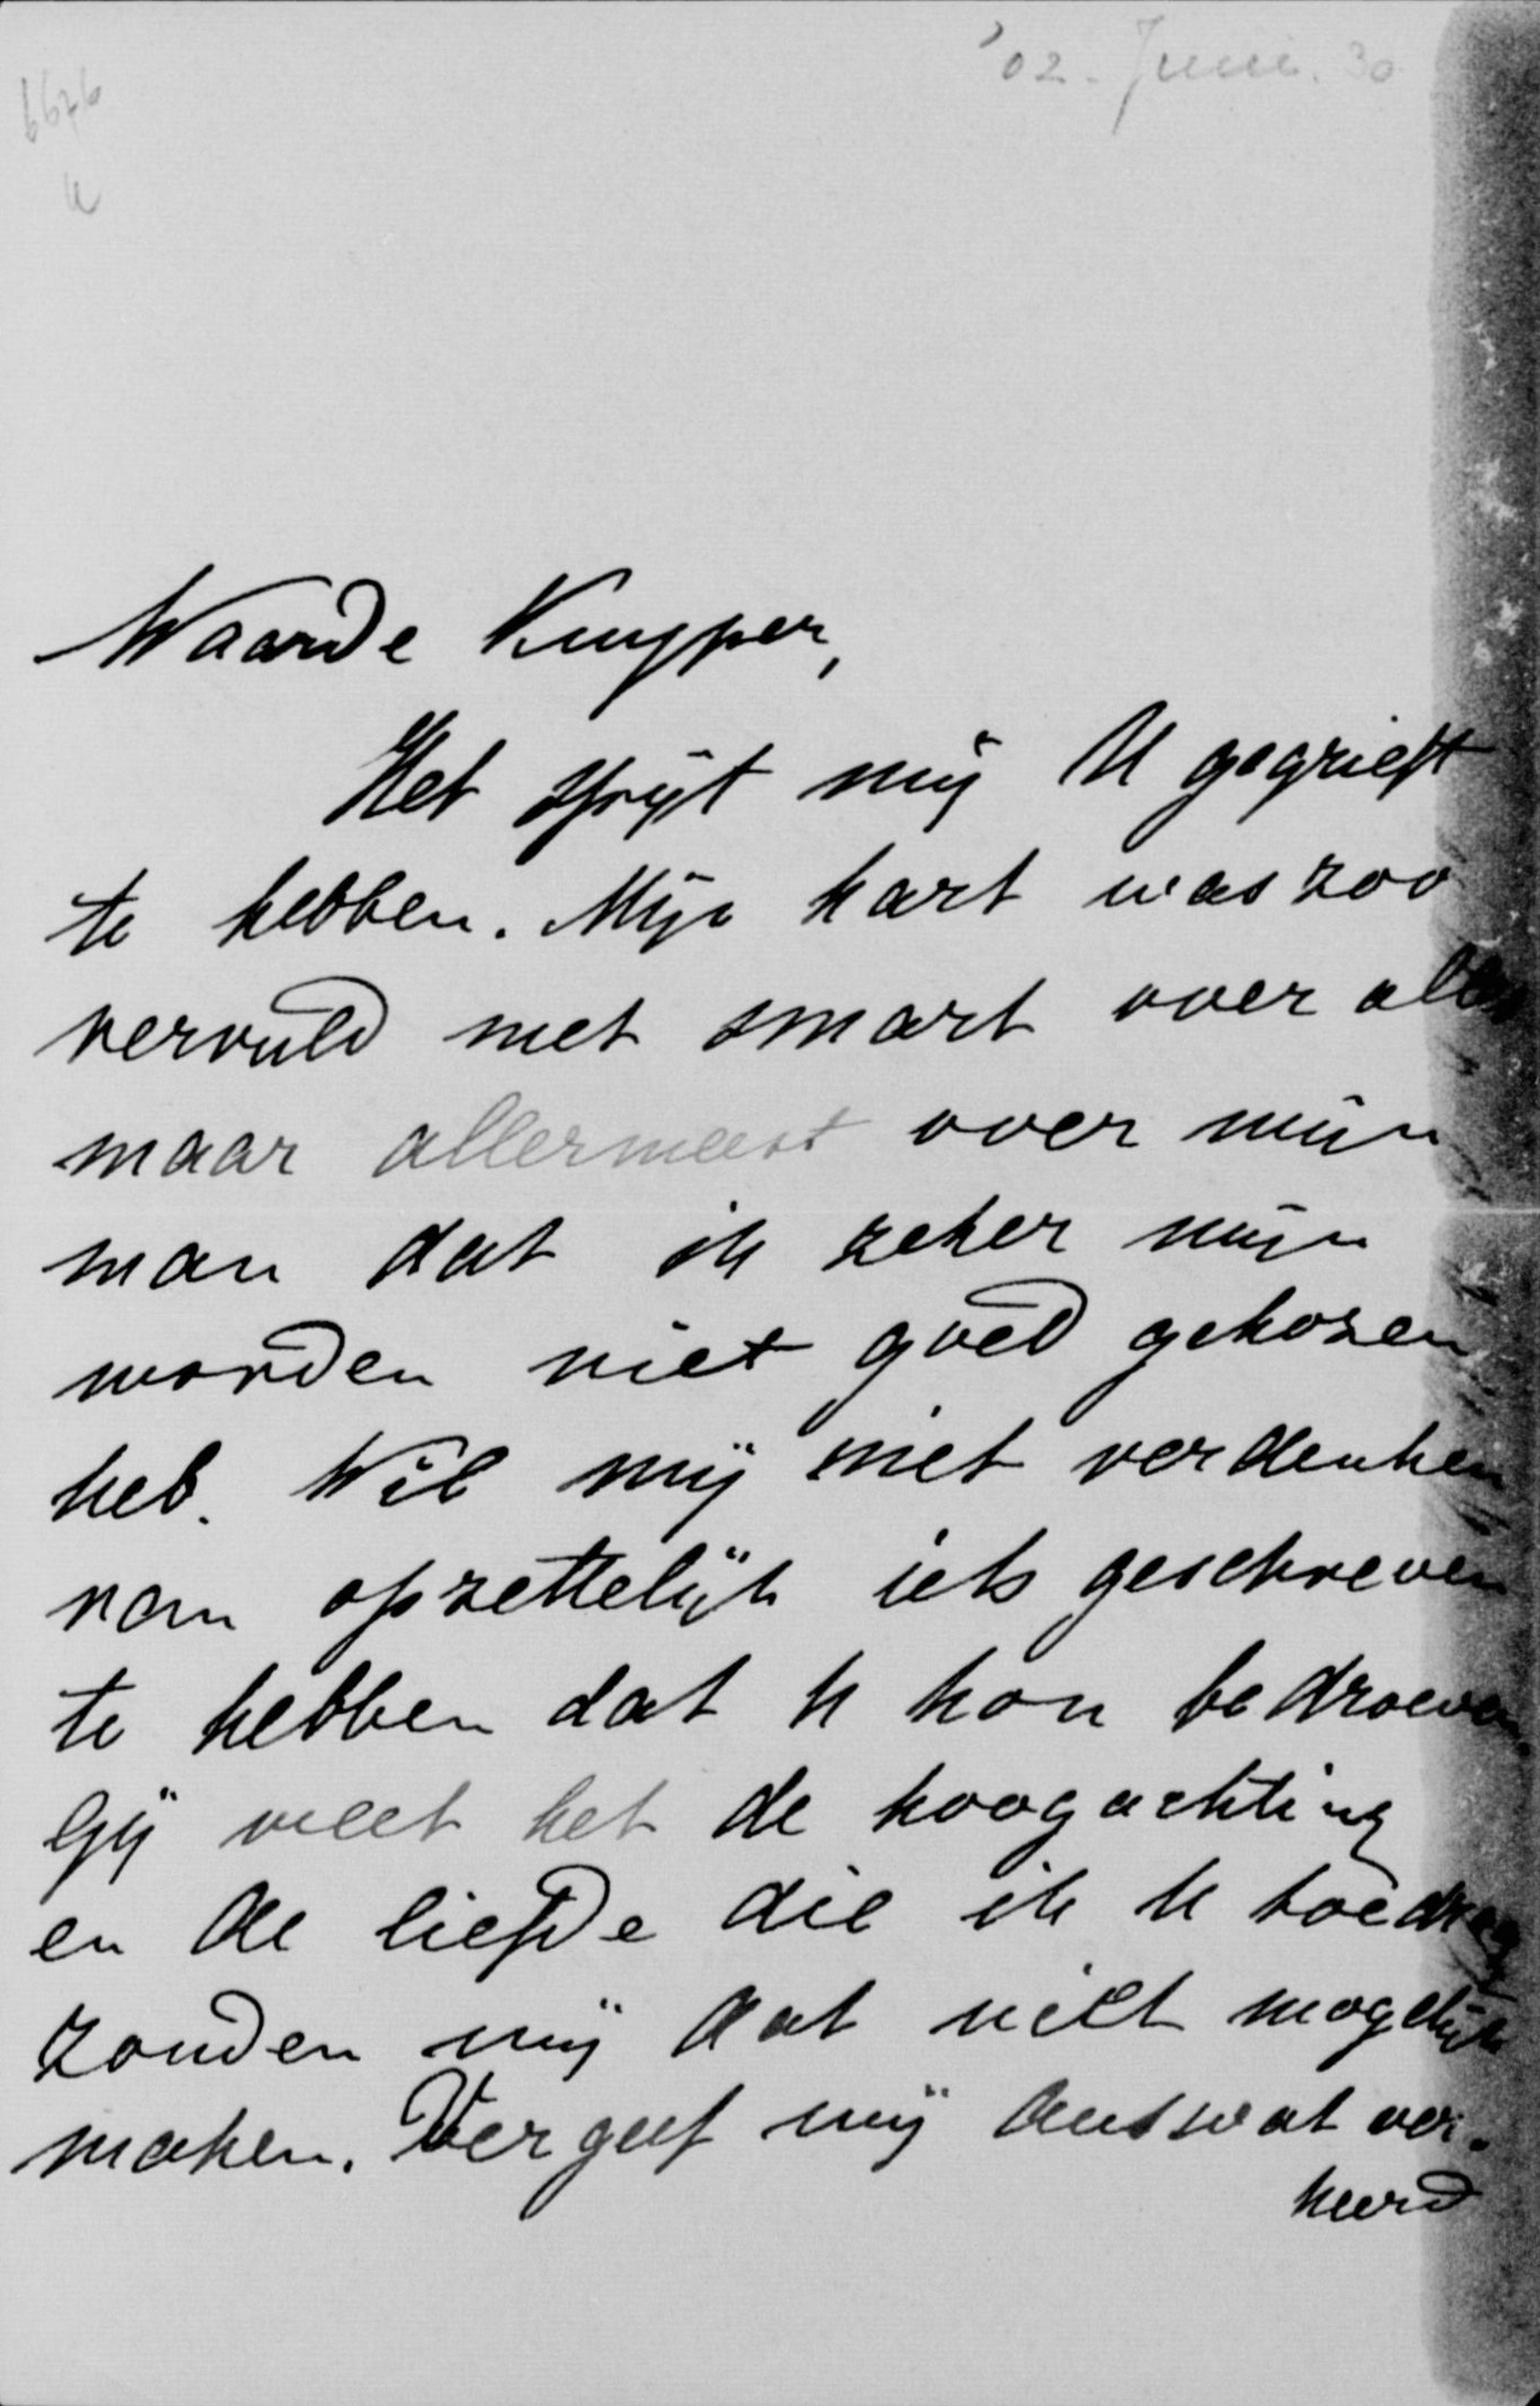 '02. Juni. 30
6676
Waarde Kuyper,
Het spijt mij U gegrieft
te hebben. Mijn hart was zoo
vervuld met smart over alles
maar allermeest over mijn
man dat ik zeker mijn
woorden niet goed gekozen
heb. Wil mij niet verdenken
van opzettelijk iets geschreven
te hebben dat U kon bedroeven.
Gij weet het de hoogachting
en de liefde die ik U toedraag
zouden mij dat niet mogelijk
maken. Vergeef mij dus wat ver-
keerd